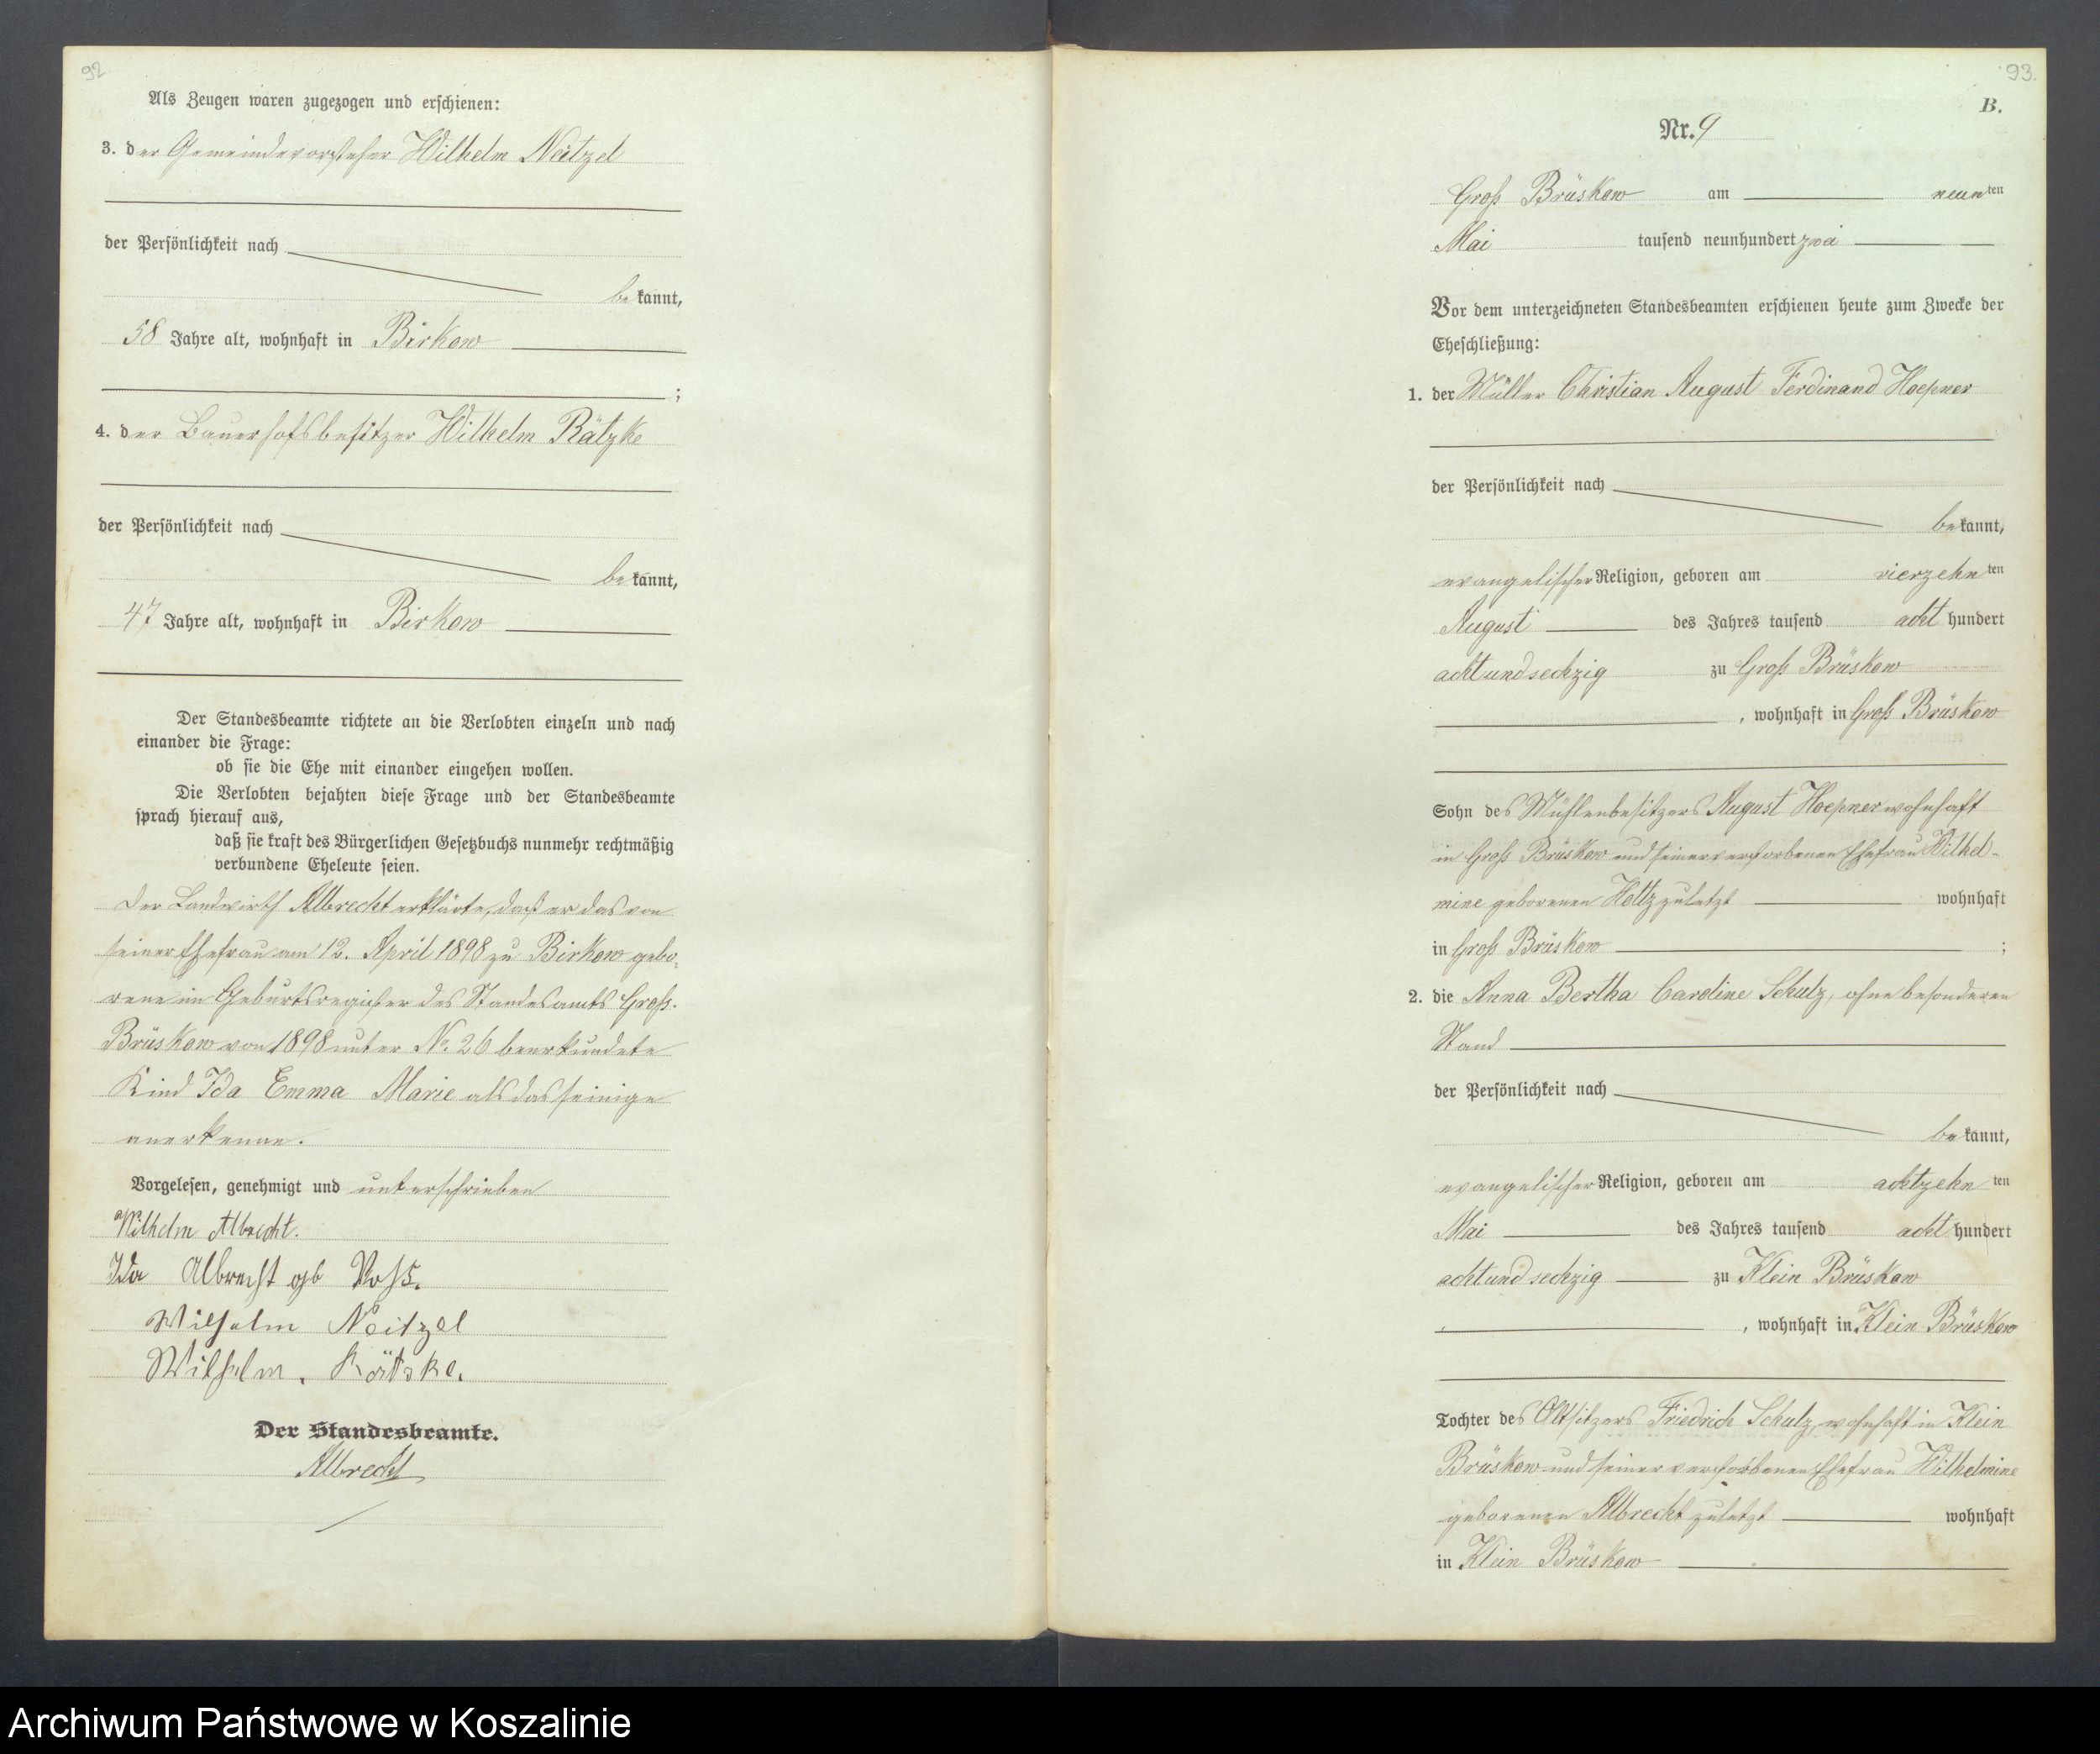 92
Als Zeugen waren zugezogen und erschienen:
3. der Gemeindevorsteher Wilhelm Neitzel
der Persönlichkeit nach
bekannt,
58 Jahre alt, wohnhaft in Birkow
;
4. der Bauerhofsbesitzer Wilhelm Rätzke
der Persönlichkeit nach
bekannt,
47 Jahre alt, wohnhaft in Birkow
Der Standesbeamte richtete an die Verlobten einzeln und nach
einander die Frage:
ob sie die Ehe mit einander eingehen wollen.
Die Verlobten bejahten diese Frage und der Standesbeamte
sprach hierauf aus,
daß sie kraft des Bürgerlichen Gesetzbuchs nunmehr rechtmäßig
verbundene Eheleute seien.
Der Landwirth Albrecht erklärte, daß er das von
seiner Ehefrau am 12. April 1898 zu Birkow gebo-
rene im Geburtsregister des Standesamts Groß-
Brüskow von 1898 unter No. 26 beurkundete
Kind Ida Emma Marie als das seinige
anerkenne.
Vorgelesen, genehmigt und unterschrieben
Wilhelm Albrecht.
Ida Albrecht gb Voß.
Wilhelm Neitzel
Wilhelm. Rätzke.
Der Standesbeamte.
Albrecht
93.
B.
Nr. 9
Groß Brüskow am neunten
Mai tausend neunhundert zwei
Vor dem unterzeichneten Standesbeamten erschienen heute zum Zwecke der
Eheschließung:
1. der Müller Christian August Ferdinand Hoepner
der Persönlichkeit nach
bekannt,
evangelischer Religion, geboren am vierzehnten
August des Jahres tausend acht hundert
achtundsechzig zu Groß Brüskow
, wohnhaft in Groß Brüskow
Sohn des Mühlenbesitzers August Hoepner wohnhaft
in Groß Brüskow und seiner verstorbenen Ehefrau Wilhel-
mine geborenen zuletzt wohnhaft
in Groß Brüskow ;
2. die Anna Bertha Caroline Schulz, ohne besonderen
Stand
der Persönlichkeit nach
bekannt,
evangelischer Religion, geboren am achtzehnten
Mai des Jahres tausend acht hundert
achtundsechzig zu Klein Brüskow
, wohnhaft in Klein Brüskow
Tochter des Altsitzers Friedrich Schulz, wohnhaft in Klein
Brüskow und seiner verstorbenen Ehefrau Wilhelmine
geborenen Albrecht zuletzt wohnhaft
in Klein Brüskow
Archiwum Państwowe w Koszalinie